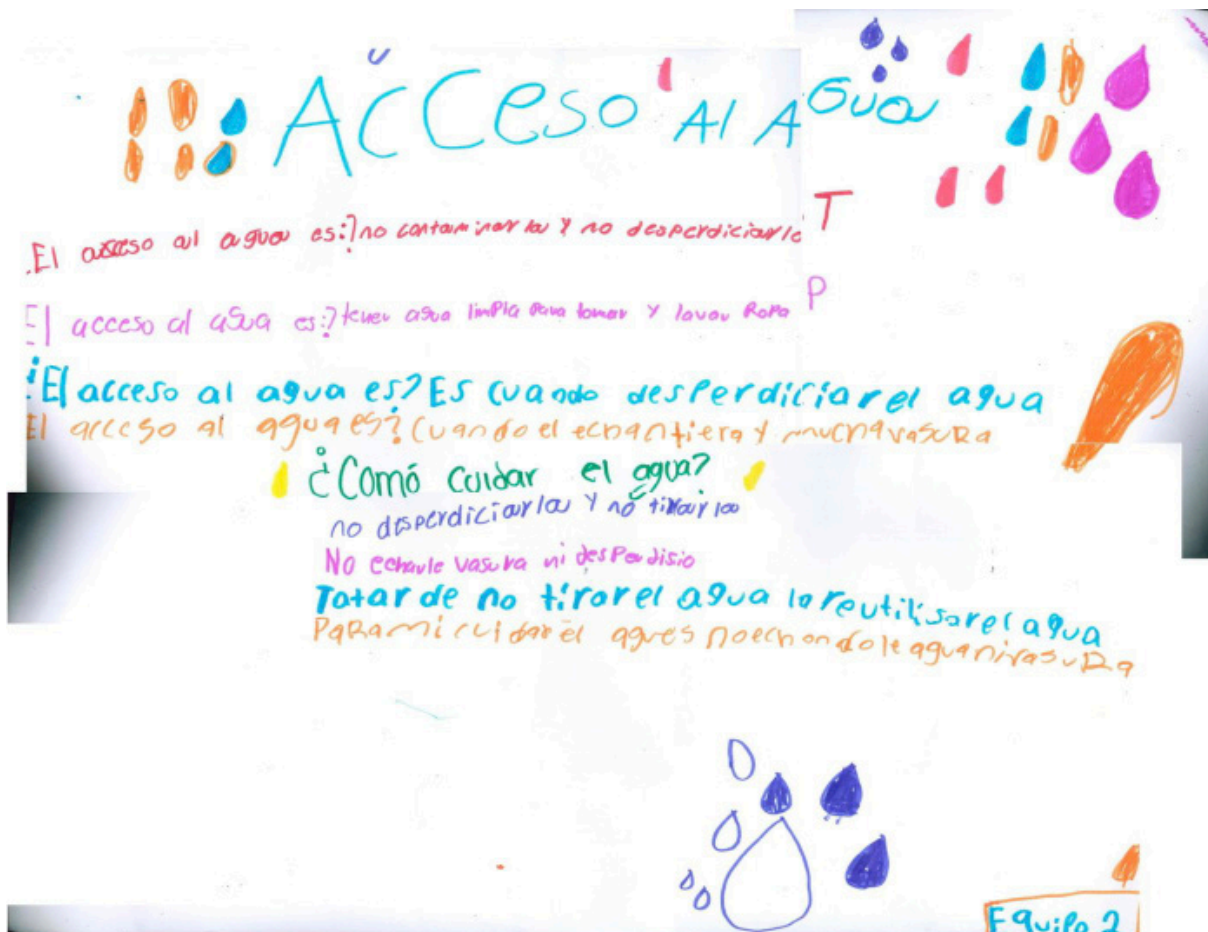 ACCeso Al AGua
.El acceso al agua es:? no contaminarla y no desperdiciarla T
El acceso al agua es:? tener agua limpia para tomar y lavar Ropa P
¿El acceso al agua es? Es cuando desperdiciar el agua
El acceso al agua es? Cuando el echan tiera y mucha vasuRa
¿Comó cuidar el agua?
no desperdiciarla y no tirarla
No echarle vasura ni desperdisio
Tatar de no tirar el agua la reutilisar el agua
PaRa mi cuidar el agu es no echandole agua ni vasuRa
Equipo 2